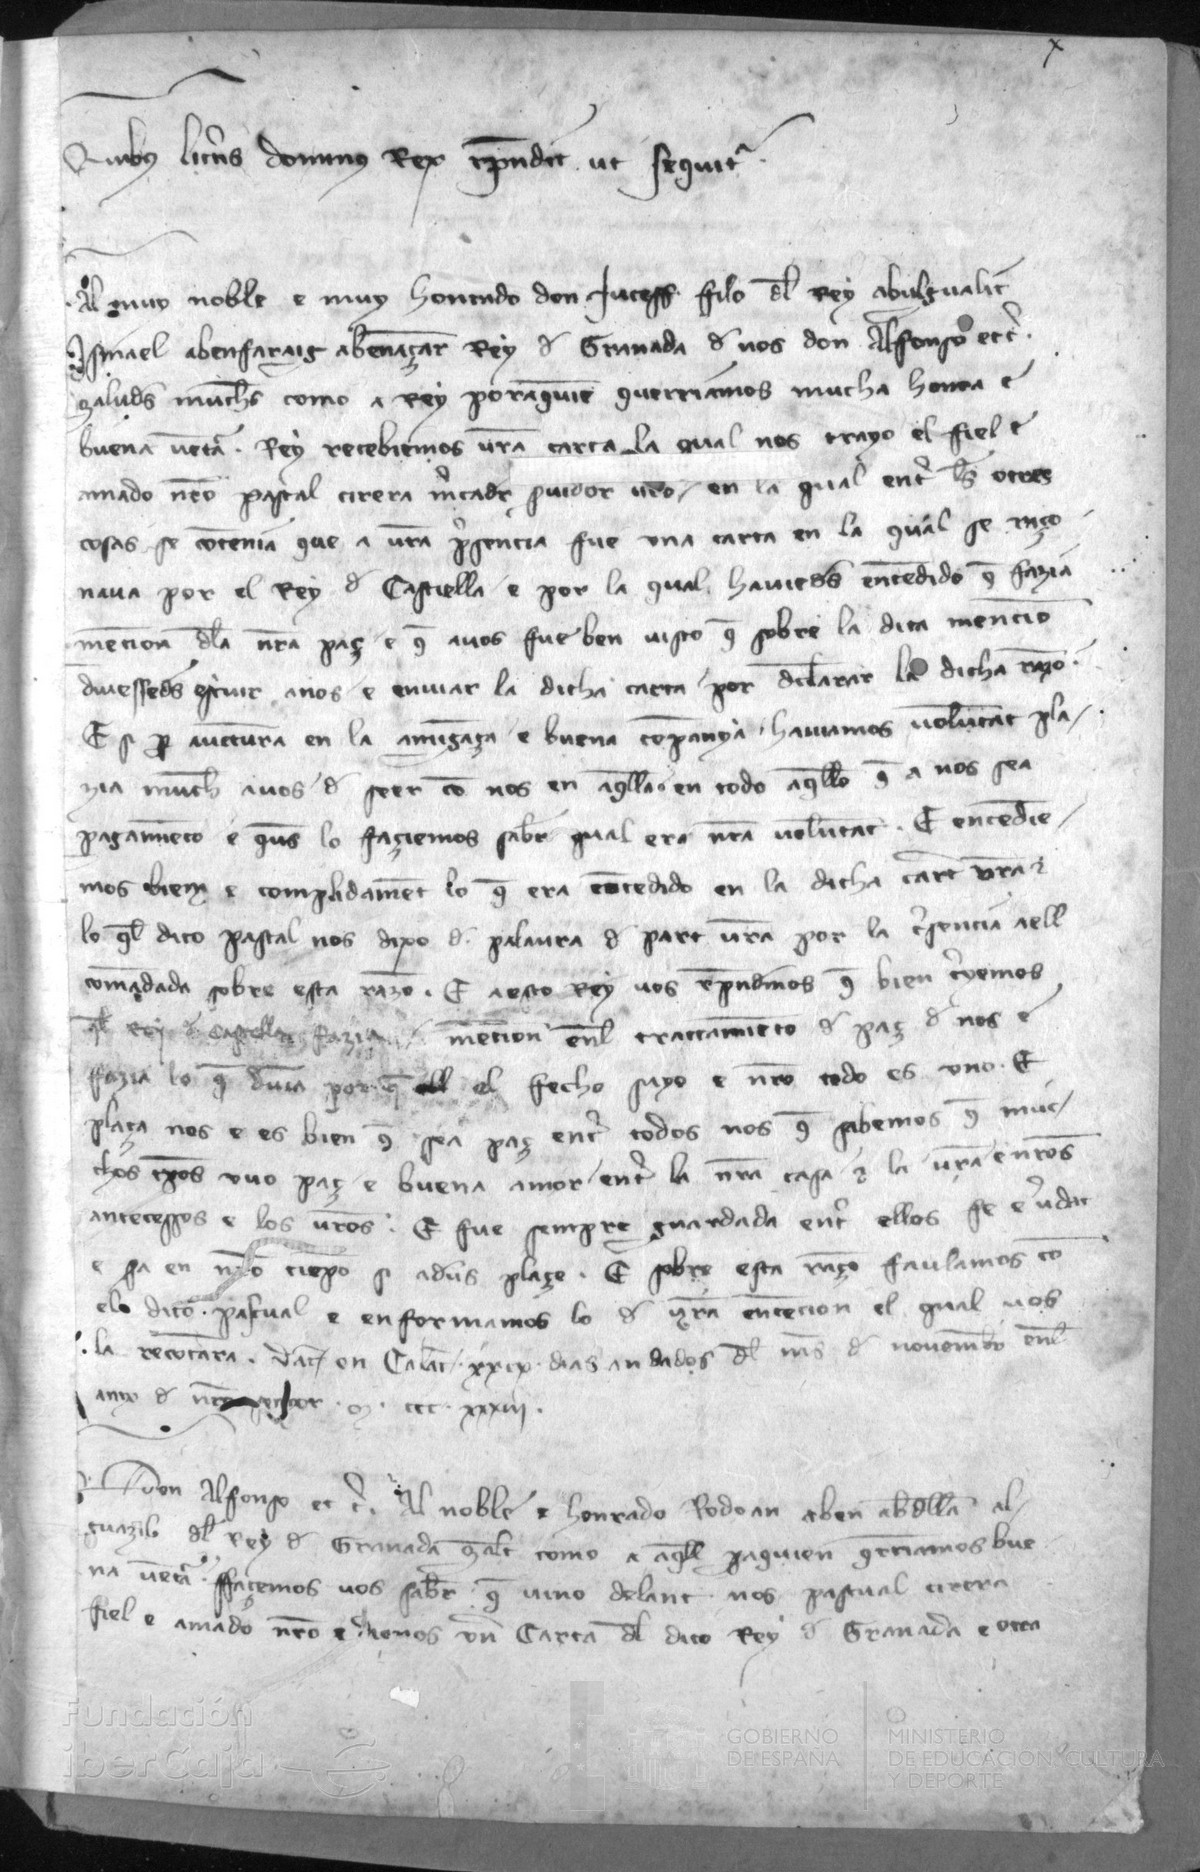 x
Quibus litteris dominus Rex respondit ut sequitur.
Al muy noble e muy honrado don Juceff filo del Rey abulgualit
Ismael abenfaraig abenaçar Rey de Granada de nos don Alfonso etc.
saludes muchas como a Rey pora quien querriamos mucha honra e
buena ventura. Rey recebiemos vuestra carta la qual nos trayo el fiel e
amado nuestro pascal cirera mercader seruidor vuestro en la qual entre las otras
cosas se contenia que a vuestra presencia fue vna carta en la qual se raço
naua por el Rey de Castiella e por la qual hauiedes entendido que fazia
mencion dela nuestra paç e que a uos fue ben visto que sobre la dita mencion
deuiessedes escriuir a nos e enuiar la dicha carta por declarar la dicha razon.
E si por auentura en la amigança e buena companya hauiamos voluntat pla
zia much a uos de seer con nos en aquella en todo aquello que a nos sea
pagamiento e que uos lo façiemos saber qual era nuestra voluntat. E entendie
mos bien e complidament lo que era contedido en la dicha cart vuestra e
lo quel dito pascal nos dixo de palaura de part vuestra por la creencia a ell
comandada sobre esta razon. E a esto Rey vos respondemos que bien creemos
quel Rey de Castella fazia mencion enel tractamiento de paç de nos e
fazia lo que deuia por que el fecho suyo e nuestro todo es vno. E
plaça nos e es bien que sea paç entre todos nos que sabemos que muc
chos tiempos vuo paç e buena amor entre la nuestra casa e la vuestra e nuestros
antecessos e los vuestros. E fue sempre guardada entre ellos fe e verdat
e sa en nuestro tiempo si a dius plaçe. E sobre esta raçon faulamos con
elo dito pascual e enformamos lo de nuestra entencion el qual vos
la recontara. Dat en Calat. xxix. dias andados del mes de nouembre enel
anyo de nuestro senyor. M. CCC. xxxiii.
Don Alfonso etc. Al noble e honrado Rodoan aben abdella al
guazilo del Rey de Granada salut como a aquell pora quien querriamos bue
na ventura. ffaçemos vos saber que vino delant nos pascual cirera
fiel e amado nuestro e dionos vna Carta del dito Rey de Granada e otra
Fundación
iberCaja
GOBIERNO
DE ESPAÑA
MINISTERIO
DE EDUCACIÓN, CULTURA
Y DEPORTE